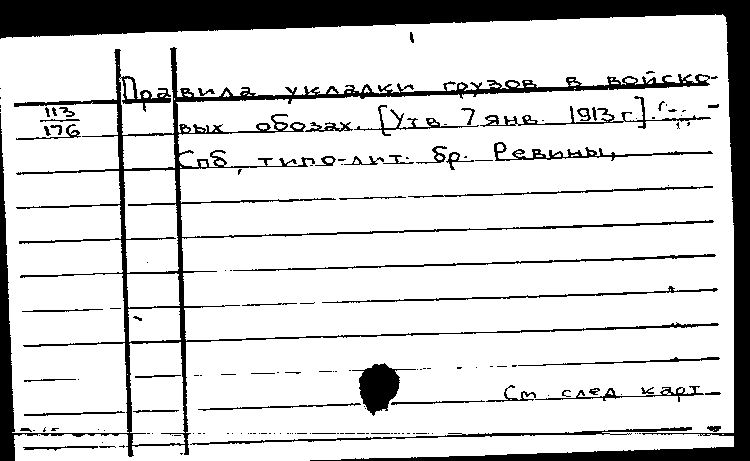 Правила укладки грузов в войско-
113
176
вых обозах. [Утв. 7 янв. 1913 г].
Спб, типо-лит. бр. Ревины,
См след карт